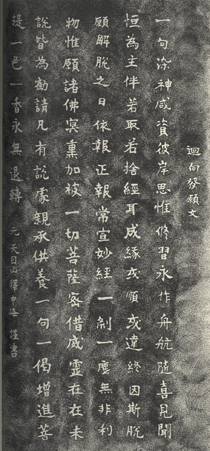 迴向發願文
一句染神咸資彼岸思惟修習永作舟航隨喜見聞
恒為主伴若取若捨經耳成緣或順或違終因斯脫
願解脫之日依報正報常宣妙經一剎一塵無非利
物惟願諸佛冥熏加被一切菩薩密借威靈在在未
說皆為勸請凡有說處親承供養一句一偈增進菩
提一色一香永無退轉
元天目山釋中峰謹書